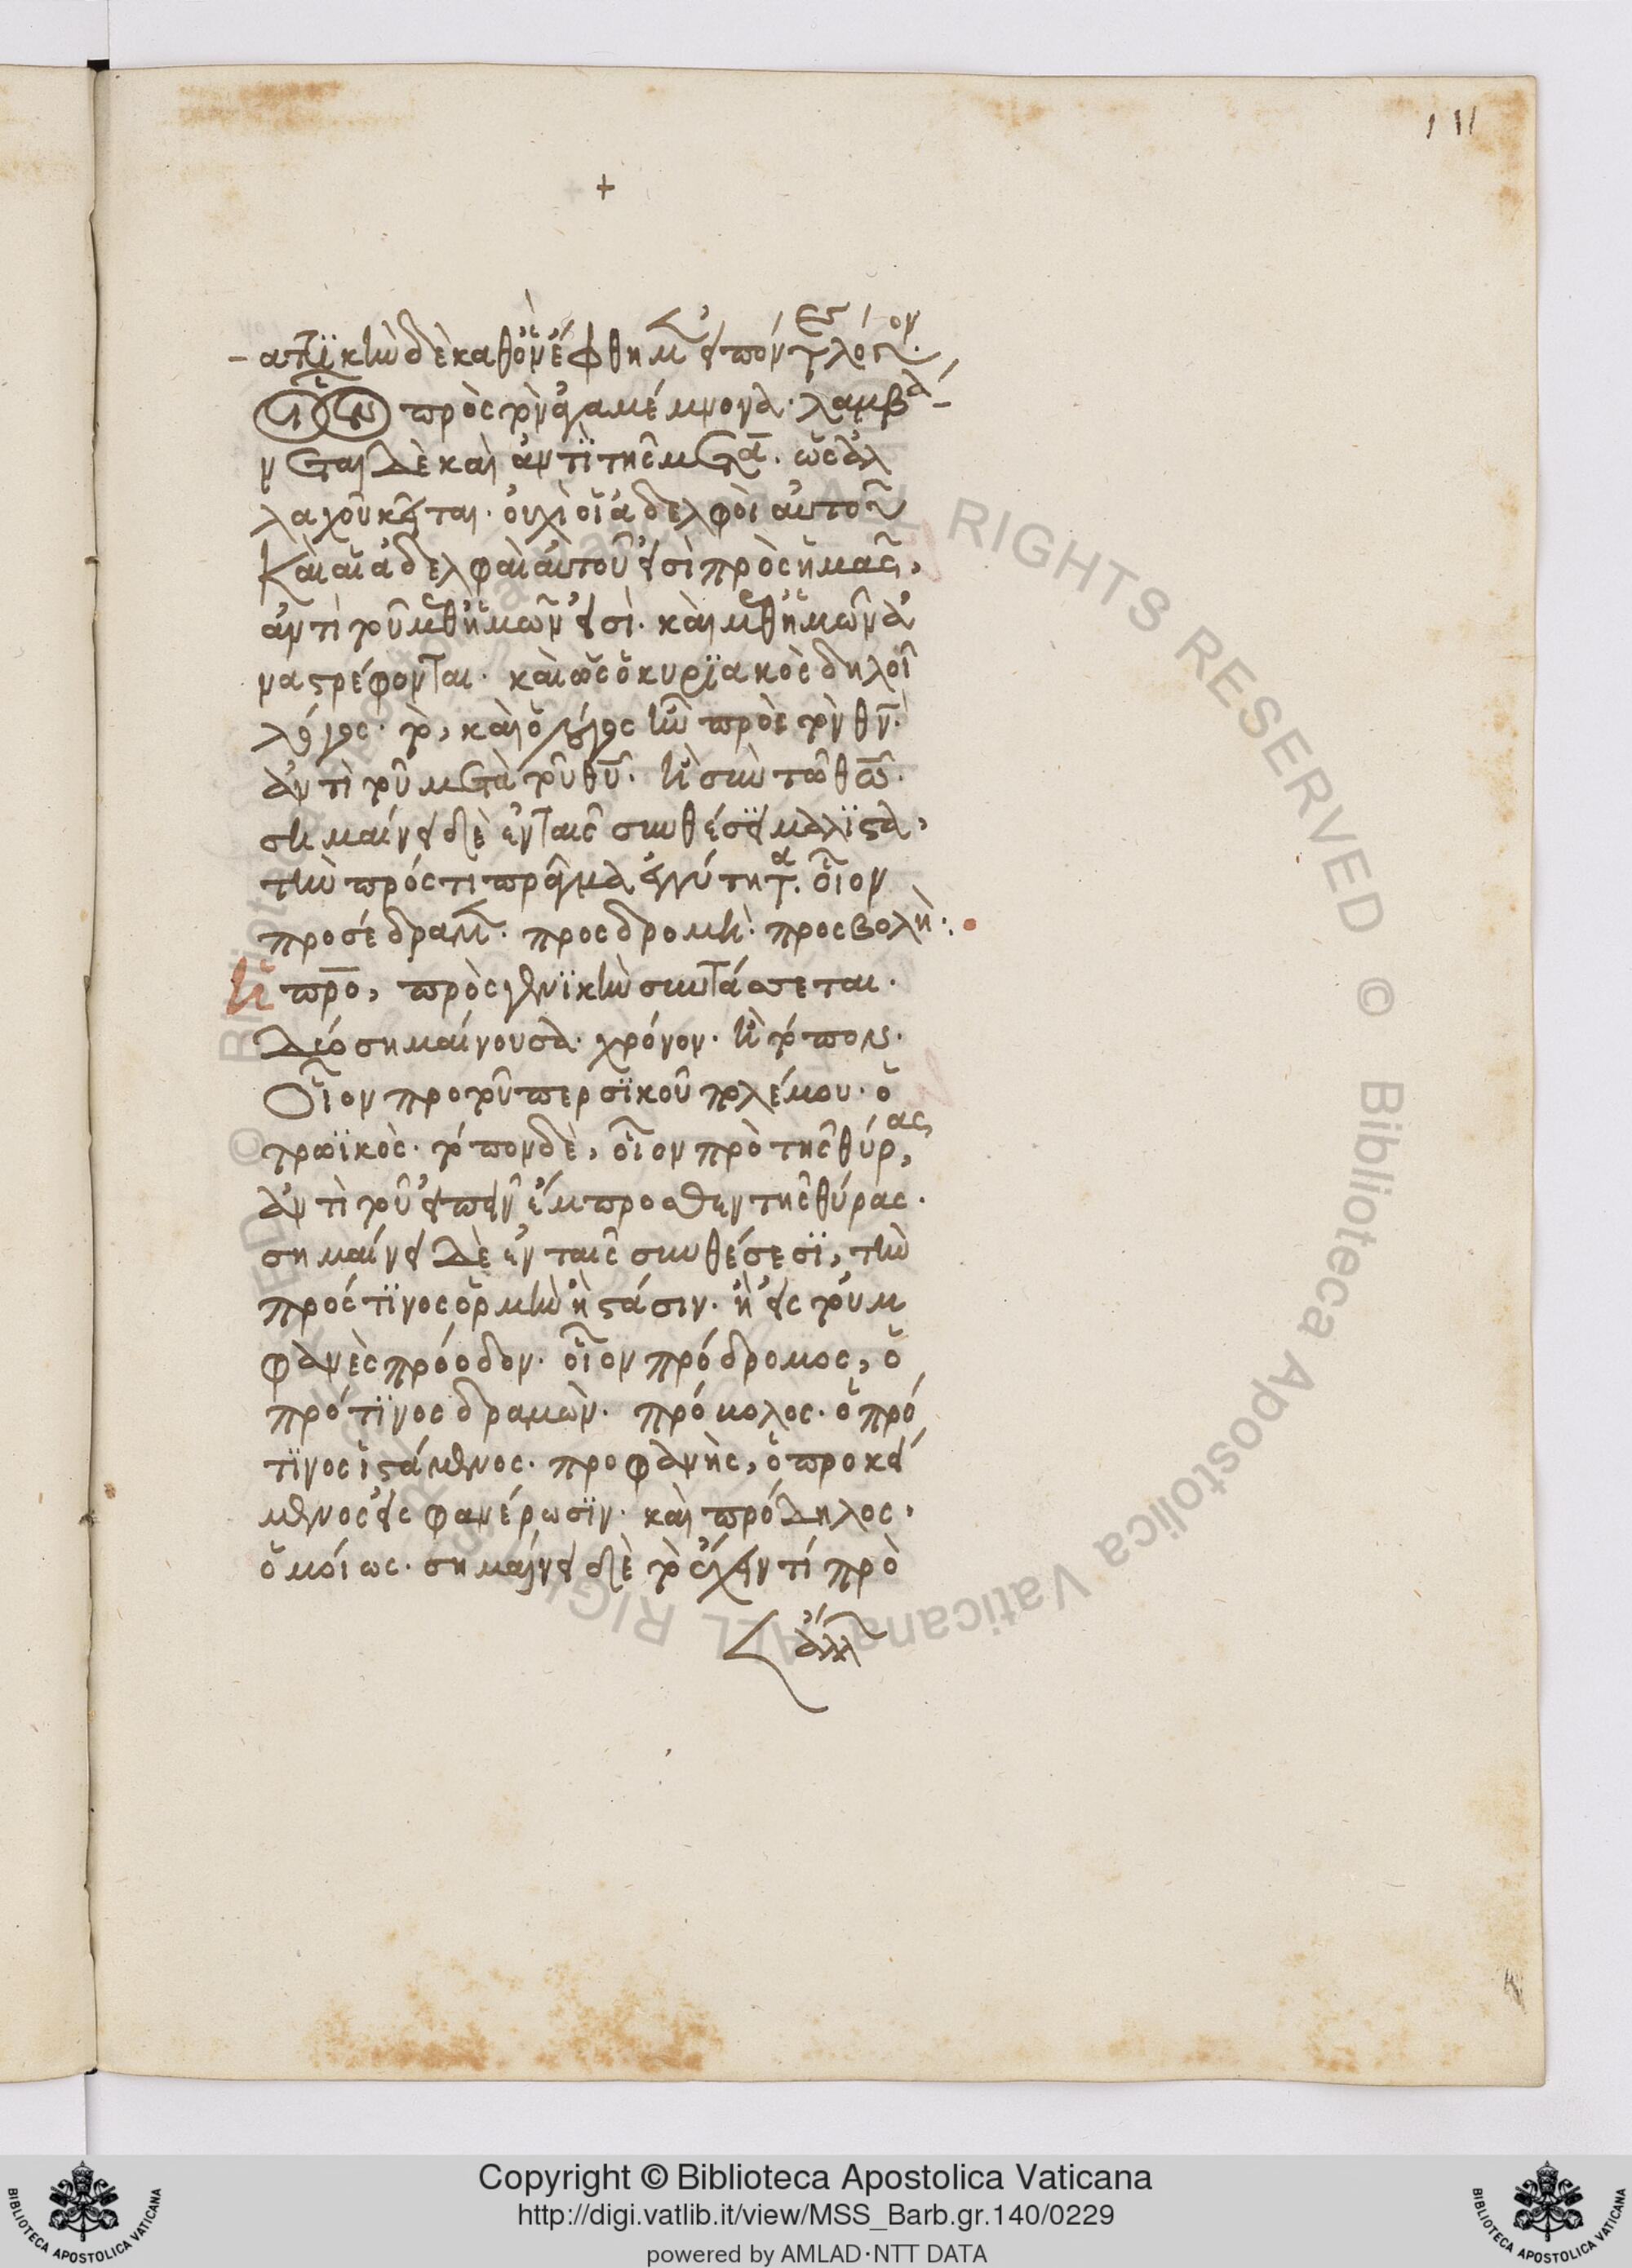 111
+
- ατϊκὴν δὲ καθὸν ἔφθημεν εἰπόντες λόγον.
οἷον πρὸς τὸν ἀγαμέμνονα. λαμβά-
νεται δὲ καὶ ἀντὶ τῆς μετὰ. ὡς ἀλ
λαχοῦ κεῖται. οὐχὶ οἱ ἀδελφοὶ αὐτοῦ
καὶ αἱ ἀδελφαὶ αὐτοῦ εἰσὶ πρὸς ἡμᾶς,
ἀντὶ τοῦ μεθ' ἡμῶν εἰσὶ. καὶ μεθ' ἡμῶν ἀ
ναστρέφονται. καὶ ὡς ὁ κυρϊακὸς δηλοῖ
λόγος. τὸ, καὶ ὁ λόγος ἦν πρὸς τὸν θν.
ἀντὶ τοῦ μετὰ τοῦ θυ. ἢ σὺν τῶ θω.
σημαίνει δὲ ἐν ταῖς συνθέσεσϊ μάλϊστα,
τὴν πρός τι πρᾶγμα ἐγγύτητα. οἷον
προσέδραμεν. προσδρομὴ. προσβολὴ:.
ἡ προ, πρὸς γενϊκὴν συντάσσεται.
δύο σημαίνουσα. χρόνον. ἢ τόπον.
οἷον προ τοῦ περσϊκοῦ πολέμου. ὁ
τρωϊκὸς. τόπον δὲ, οἷον πρὸ τῆς θύρας,
ἀντὶ τοῦ εἰπεῖν ἔμπροσθεν τῆς θύρας.
σημαίνει δὲ ἐν ταῖς συνθέσεσϊ, τὴν
πρό τϊνος ὁρμὴν ἢ στάσιν. ἢ εἰς τοὐμ
φανὲς πρόοδον. οἷον πρόδρομος, ὁ
πρό τϊνος δραμὼν. πρόμολος. ὁ πρό
τϊνος ἱστάμενος. προφανὴς, ὁ προκεί
μενος εἰς φανέρωσϊν. καὶ πρόδηλος,
ὁμοίως. σημαίνει δὲ τὸ ἔχειν τί πρὸ
ἄλλ
Copyright © Biblioteca Apostolica Vaticana
http://digi.vatlib.it/view/MSS_Barb.gr.140/0229
powered by AMLAD·NTT DATA
BIBLIOTECA APOSTOLICA VATICANA
BIBLIOTECA APOSTOLICA VATICANA